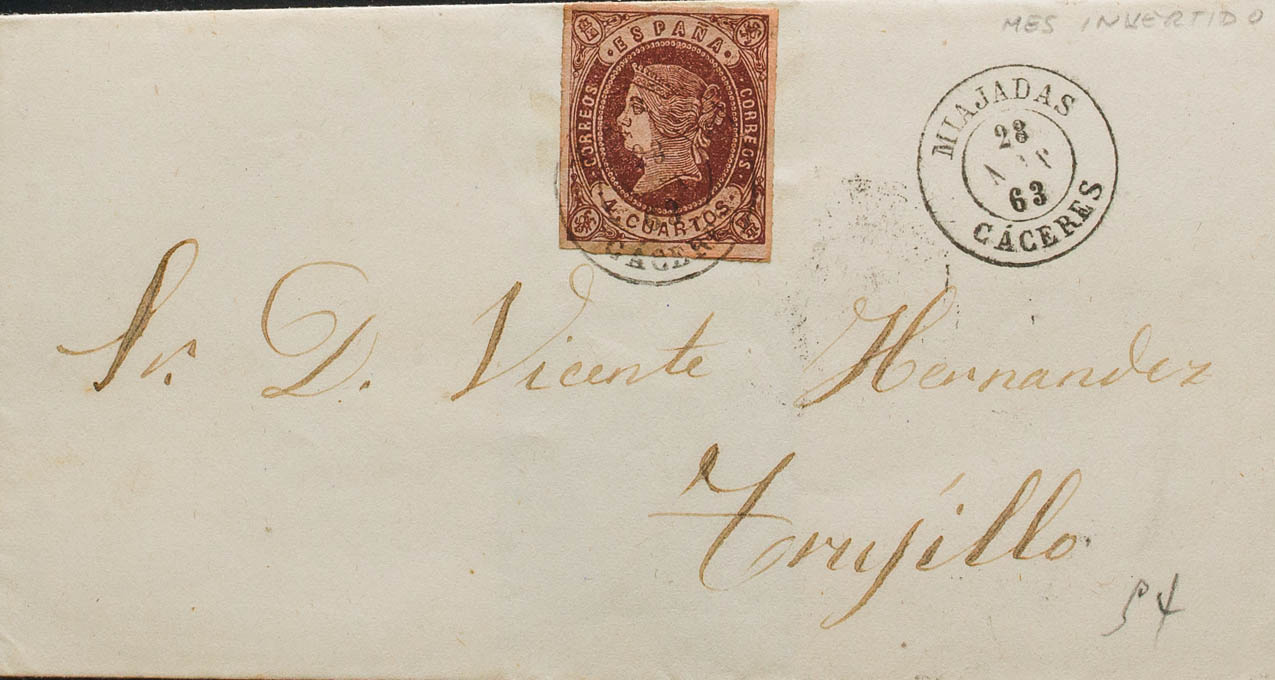 MES INVERTIDO
ESPAÑA
CORREOS
CORREOS
4. CUARTOS
MIAJADAS
28
63
CÁCERES
63
CÁCERES
Sr. D. Vicente Hernandez
Trujillo
54